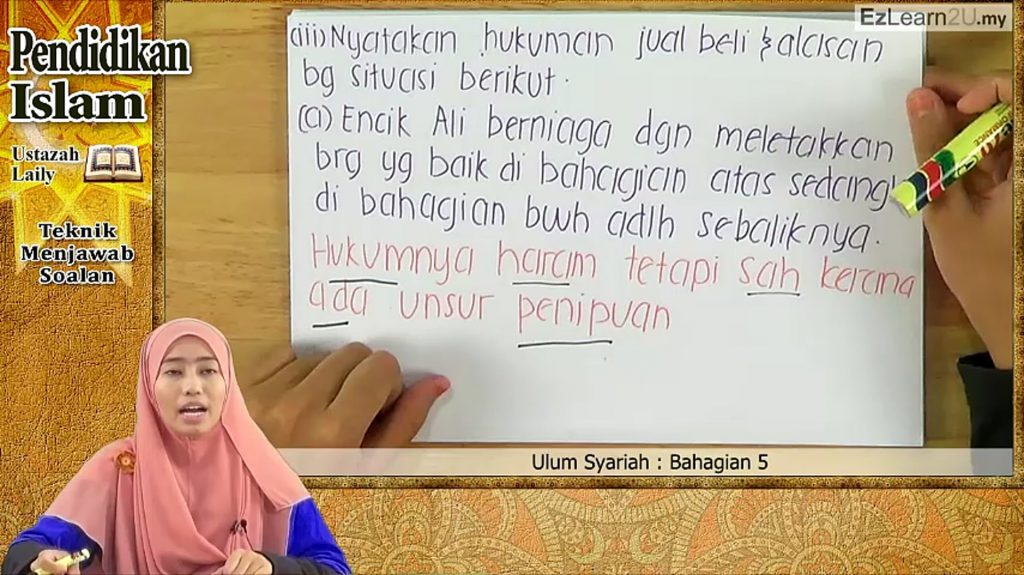 EzLearn2U.my
Pendidikan
Islam
Ustazah
Laily
Teknik
Menjawab
Soalan
(iii) Nyatakan hukuman jual beli & alasan
bg situasi berikut.
(a) Encik Ali berniaga dgn meletakkan
brg yg baik di bahagian atas sedang
di bahagian bwh adlh sebaliknya.
Hukumnya haram tetapi sah kerana
ada unsur penipuan
Ulum Syariah : Bahagian 5